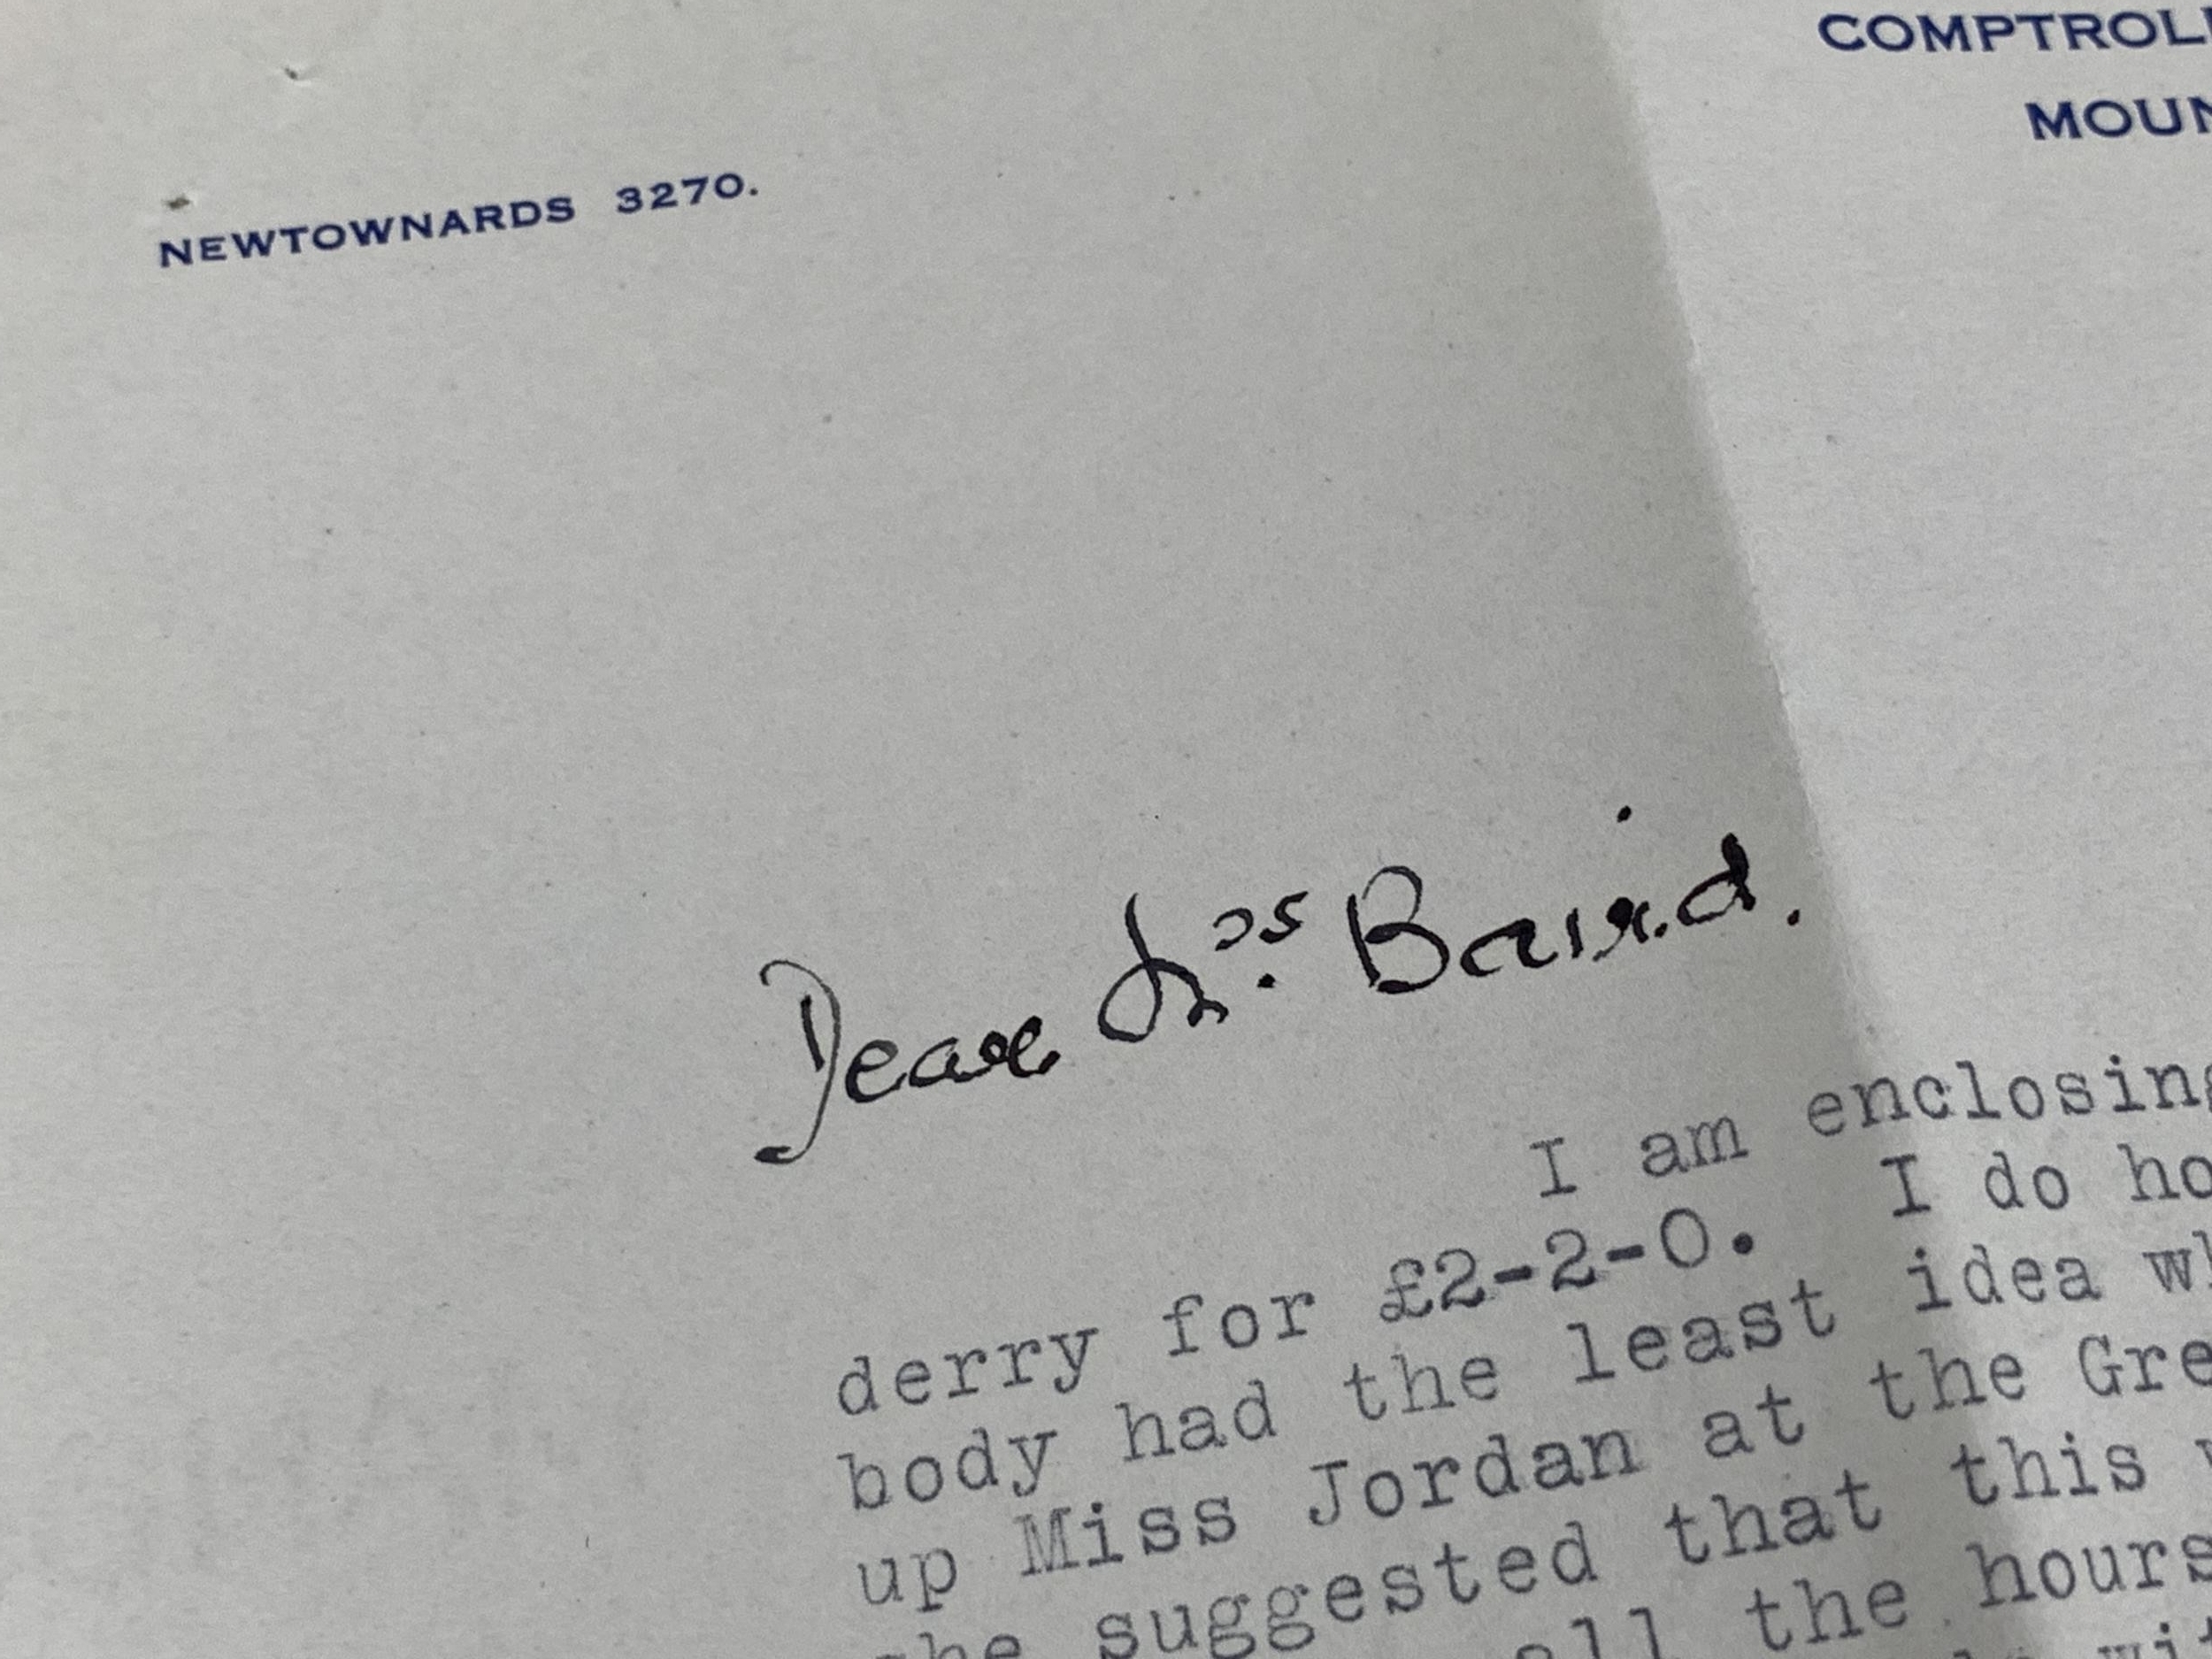 COMPTROLL
MOUN
NEWTOWNARDS 3270.
Dear Mrs. Baird.
I am enclosing
derry for £2-2-0. I do ho
body had the least idea wh
up Miss Jordan at the Gre
she suggested that this w
all the hours
wit